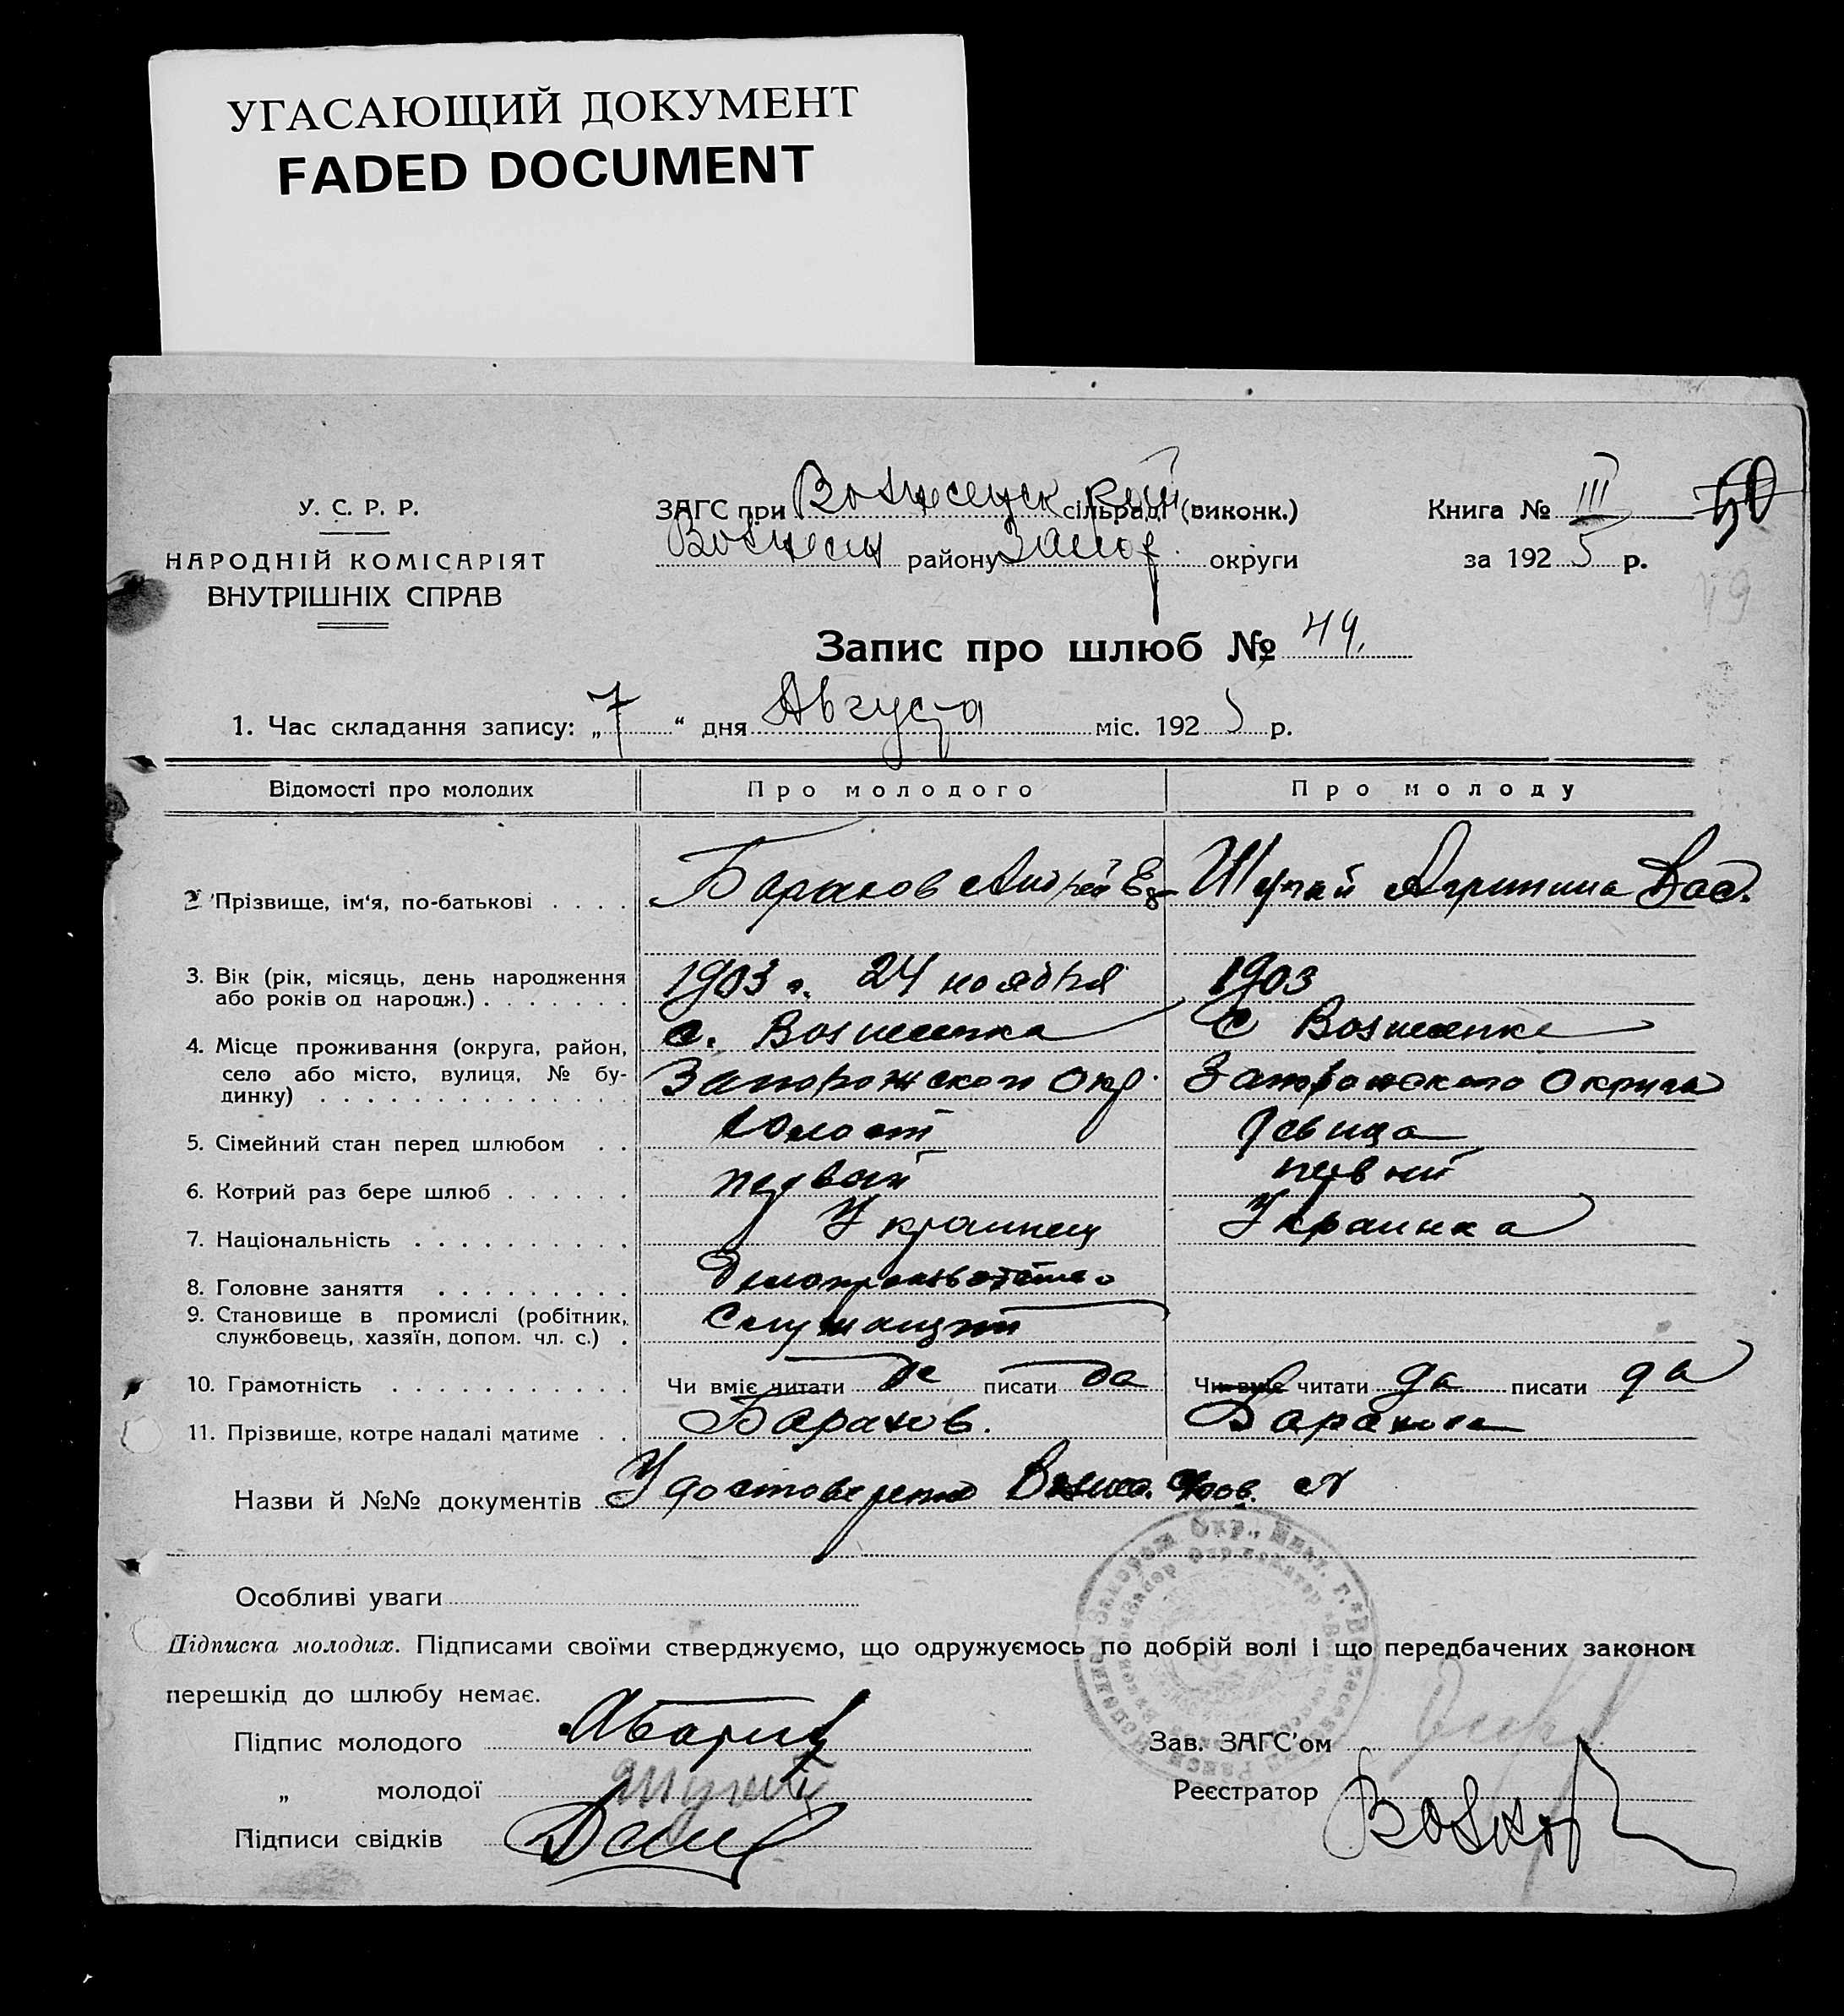 УГАСАЮЩИЙ ДОКУМЕНТ
FADED DOCUMENT
У. С. Р. Р.
НАРОДНІЙ КОМІСАРІЯТ
ВНУТРІШНІХ СПРАВ
ЗАГС при Вознесенск рай сільраді (виконк.)
Вознесен району Запор. округи
Книга № III 50
за 1925 р.
49
Запис про шлюб № 49.
1. Час складання запису: „7“ дня Августа міс. 1925 р.
Відомості про молодих Про молодого Про молоду
2. Прізвище, ім‘я, по-батькові . . . . Баранов Андрей Шупай Агрипина
3. Вік (рік, місяць, день народження
або років од народж.) . . . . . . . 1903 г. 24 ноября 1903
4. Місце проживання (округа, район, с. Вознесенка С Вознесенке
село або місто, вулиця, № бу-
динку) . . . . . . . . . . . . . . Запорожского Окр. Запорожского Округа
5. Сімейний стан перед шлюбом . . холост девица
6. Котрий раз бере шлюб . . . . . . первый первый
7. Національність . . . . . . . . . . Украинец Украинка
8. Головне заняття . . . . . . . . .
9. Становище в промислі (робітник,
службовець, хазяїн, допом. чл. с.) . Служащий
10. Грамотність . . . . . . . . . . . Чи вміє читати да писати да Чи вміє читати да писати да
11. Прізвище, котре надалі матиме . . Баранов. Баранова
Назви й №№ документів Удостоверение Вознес. №
Особливі уваги
Підписка молодих. Підписами своїми стверджуємо, що одружуємось по добрій волі і що передбачених законом
перешкід до шлюбу немає.
Підпис молодого Зав. ЗАГС'ом
„ молодої Реєстратор
Підписи свідків